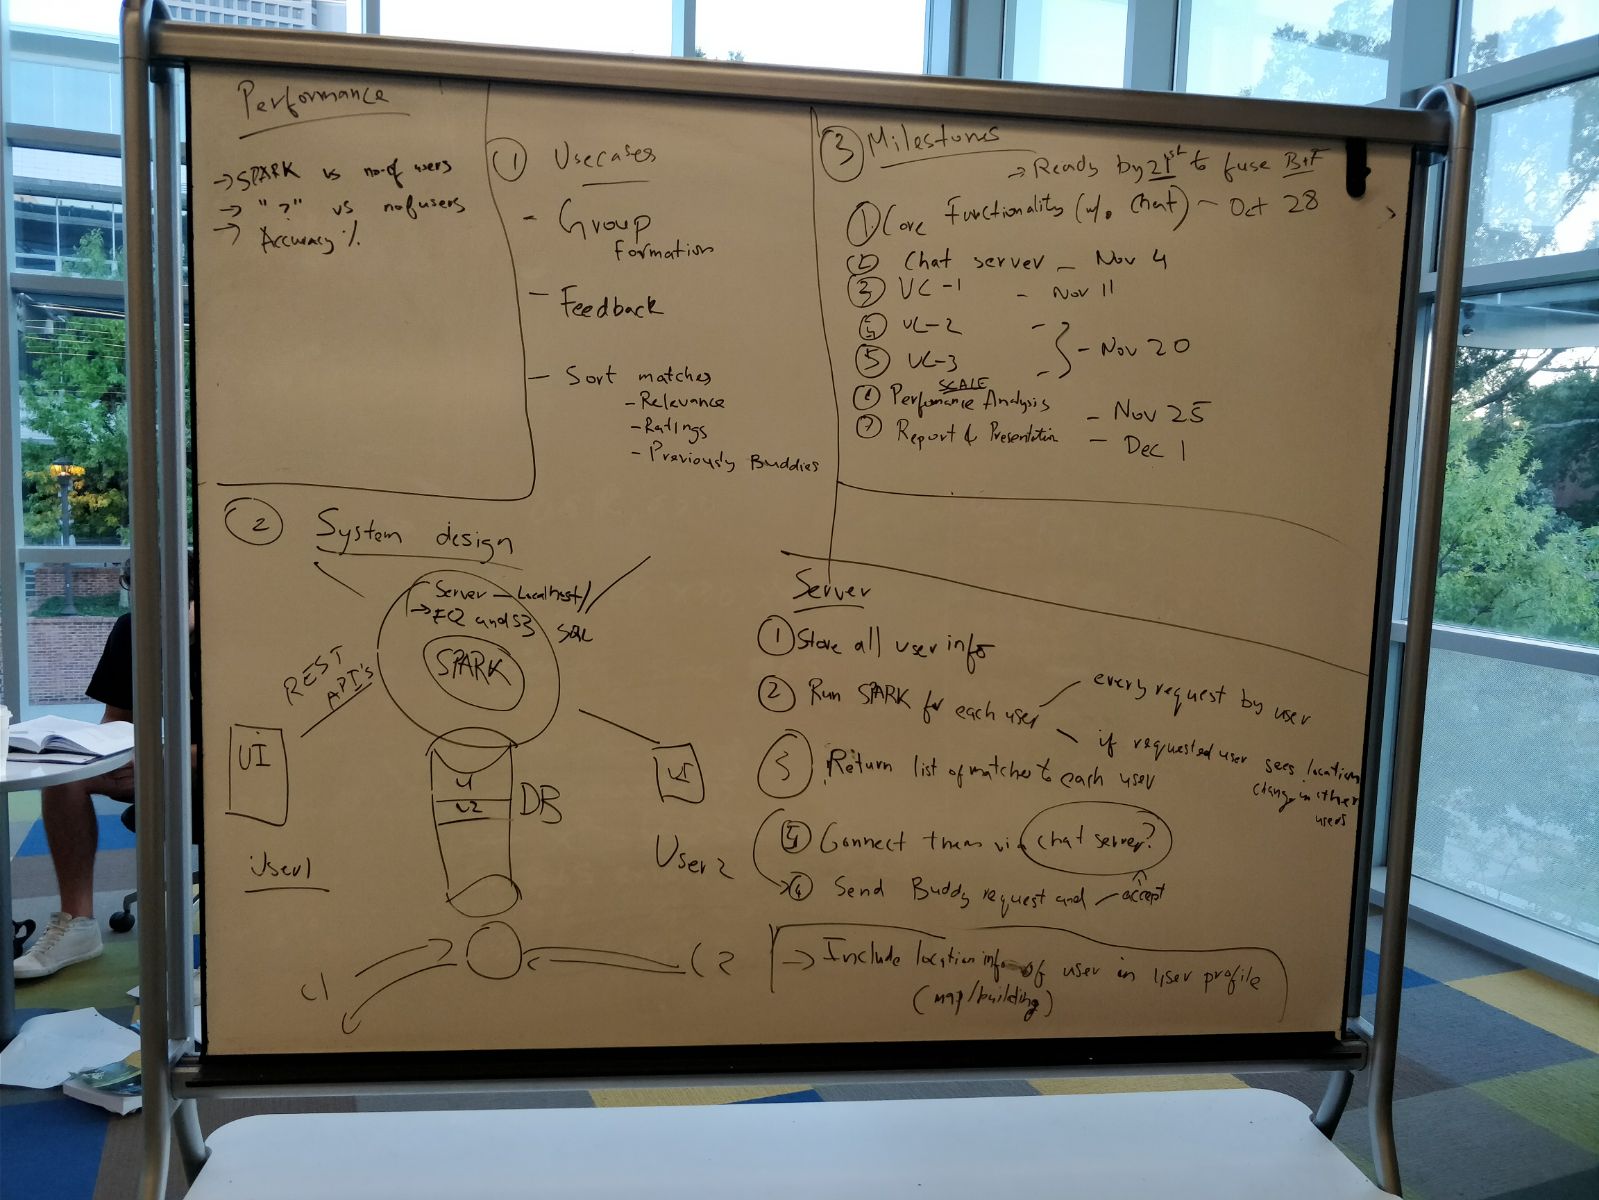 Performance
→ SPARK vs no. of users
→ "?" vs no of users
→ Accuracy %
① Usecases
- Group
Formation
- Feedback
- Sort matches
- Relevance
- Ratings
- Previously Buddies
③ Milestones
→ Ready by 21st to fuse B+F
① Core Functionality (w/o chat) - Oct 28
② Chat server - Nov 4
③ UC-1 - Nov 11
④ UC-2 -
⑤ UC-3 - } - Nov 20
SCALE
⑥ Performance Analysis - Nov 25
⑦ Report & Presentation - Dec 1
② System design
Server - Localhost/
→ EC2 and S3 SQL
SPARK
REST
API's
UI
U1
U2
DB
UI
User1
User 2
Server
① Store all user info
② Run SPARK for each user
every request by user
if requested user sees location
change in other
users
③ Return list of matches to each user
⑤ Connect them via chat server?
④ Send Buddy request and accept
→ Include location info of user in user profile
(map/building)